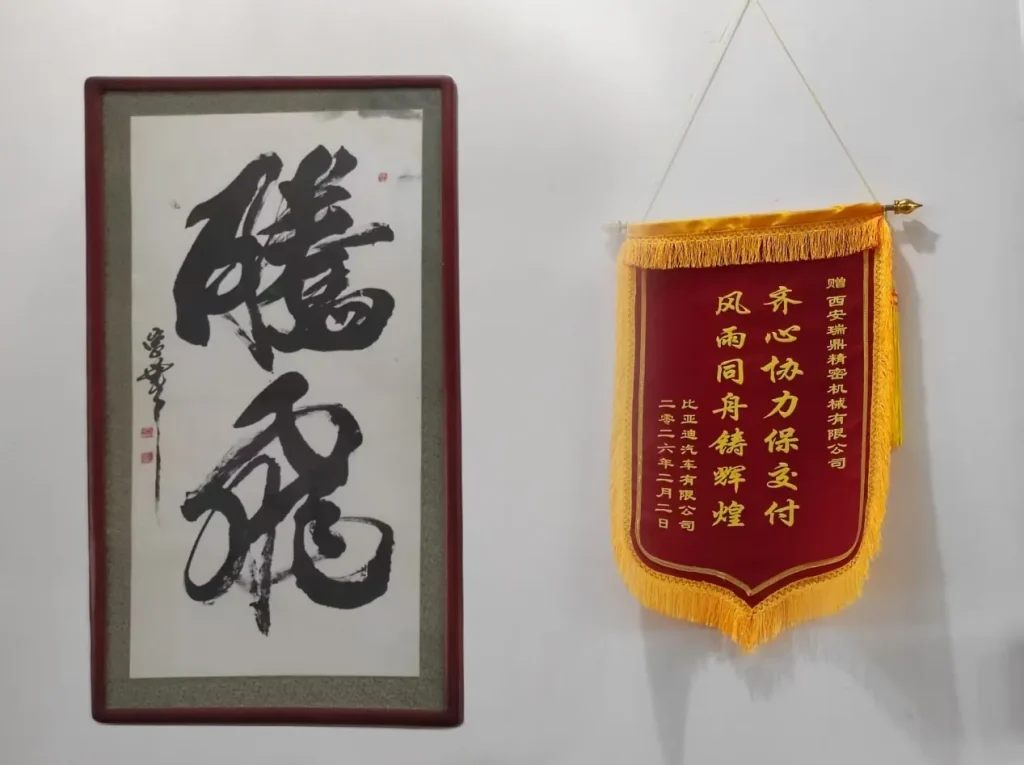 騰飛
赠 西安瑞鼎精密机械有限公司
齐心协力保交付
风雨同舟铸辉煌
比亚迪汽车有限公司
二零二六年二月二日